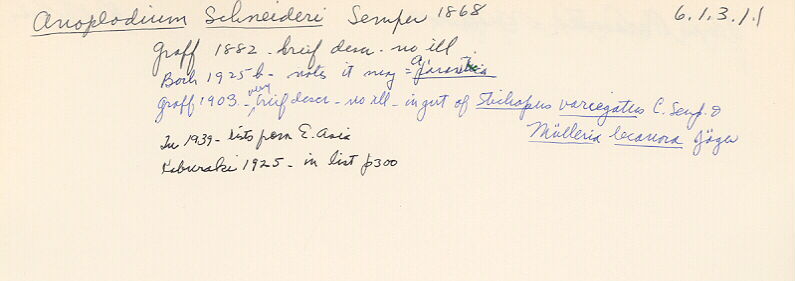 Anoplodium Schneideri Semper 1868 6.1.3.1.1
Graff 1882 - brief descr - no ill
Bock 1925 b - notes it may =
Graff 1903 - very brief descr - no ill - in gut of Stichopus variegatus C. Semp. &
Mülleria lecanora Jäger
In 1939 - lists from E. Asia
Kaburaki 1925 - in list p300